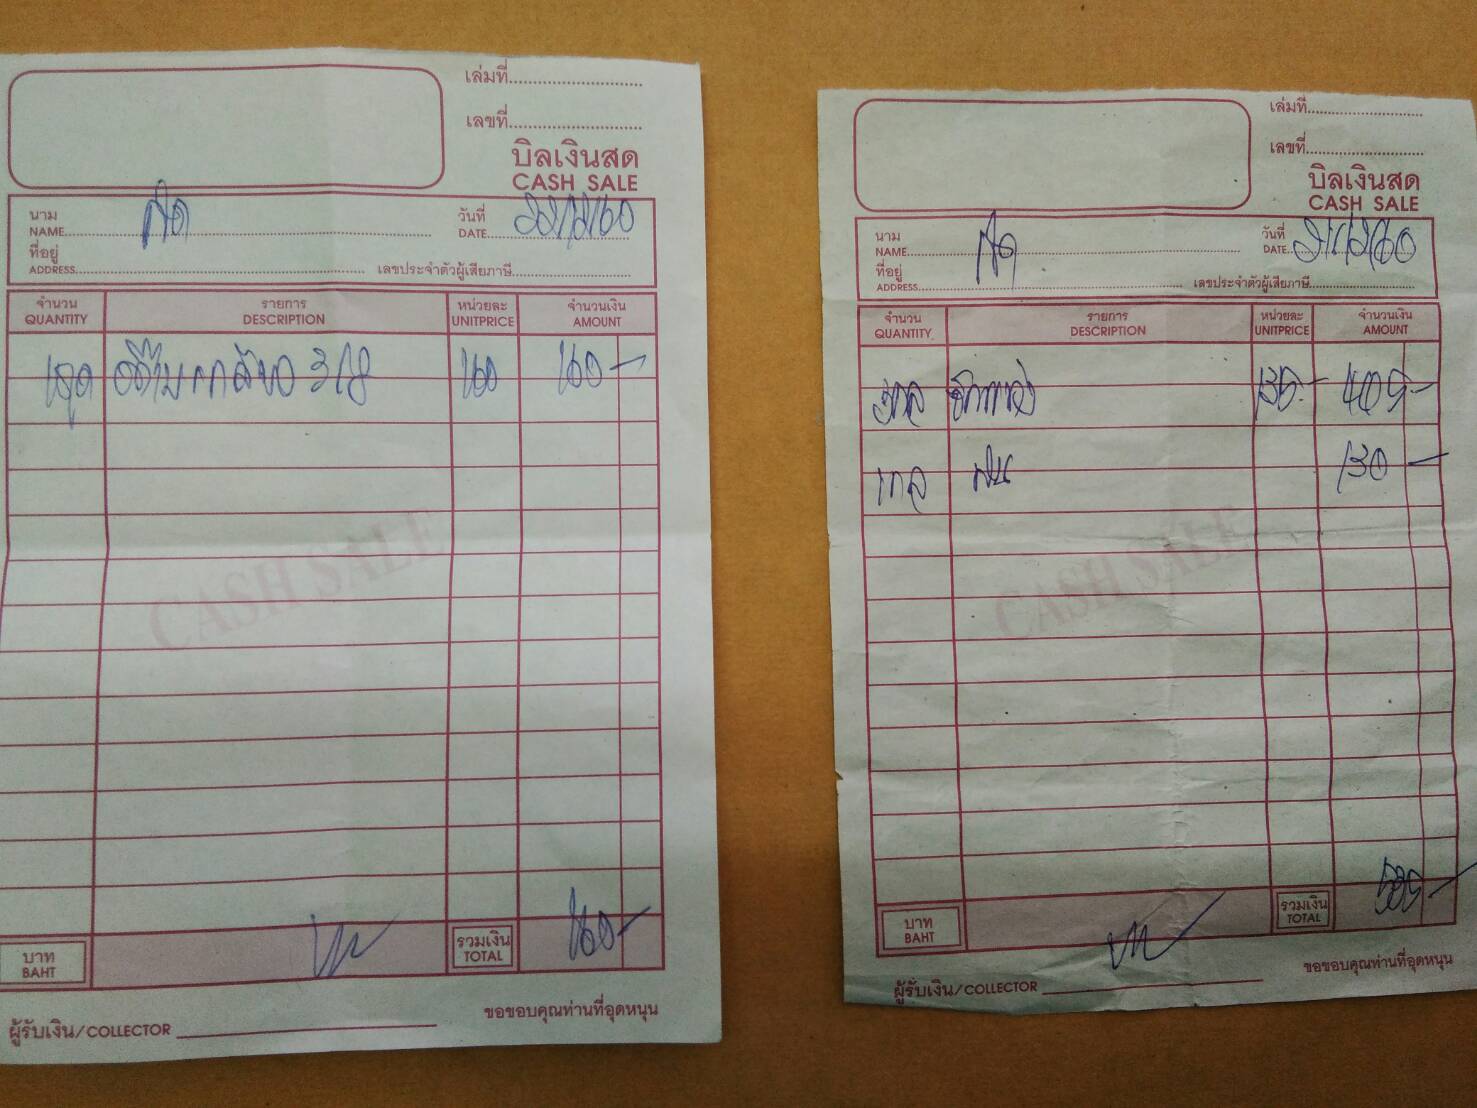 เล่มที่
เลขที่
บิลเงินสด
CASH SALE
นาม
NAME
สด
วันที่
DATE
22/12/60
ที่อยู่
ADDRESS
เลขประจำตัวผู้เสียภาษี
จำนวน
QUANTITY
รายการ
DESCRIPTION
หน่วยละ
UNITPRICE
จำนวนเงิน
AMOUNT
1ชุด 3/8 160 160-
CASH SALE
บาท
BAHT
รวมเงิน
TOTAL
160-
ผู้รับเงิน/COLLECTOR
ขอขอบคุณท่านที่อุดหนุน
เล่มที่
เลขที่
บิลเงินสด
CASH SALE
นาม
NAME
สด
วันที่
DATE
21/12/60
ที่อยู่
ADDRESS
เลขประจำตัวผู้เสียภาษี
จำนวน
QUANTITY
รายการ
DESCRIPTION
หน่วยละ
UNITPRICE
จำนวนเงิน
AMOUNT
3กล 135- 405-
1กล 130-
CASH SALE
บาท
BAHT
รวมเงิน
TOTAL
535-
ผู้รับเงิน/COLLECTOR
ขอขอบคุณท่านที่อุดหนุน